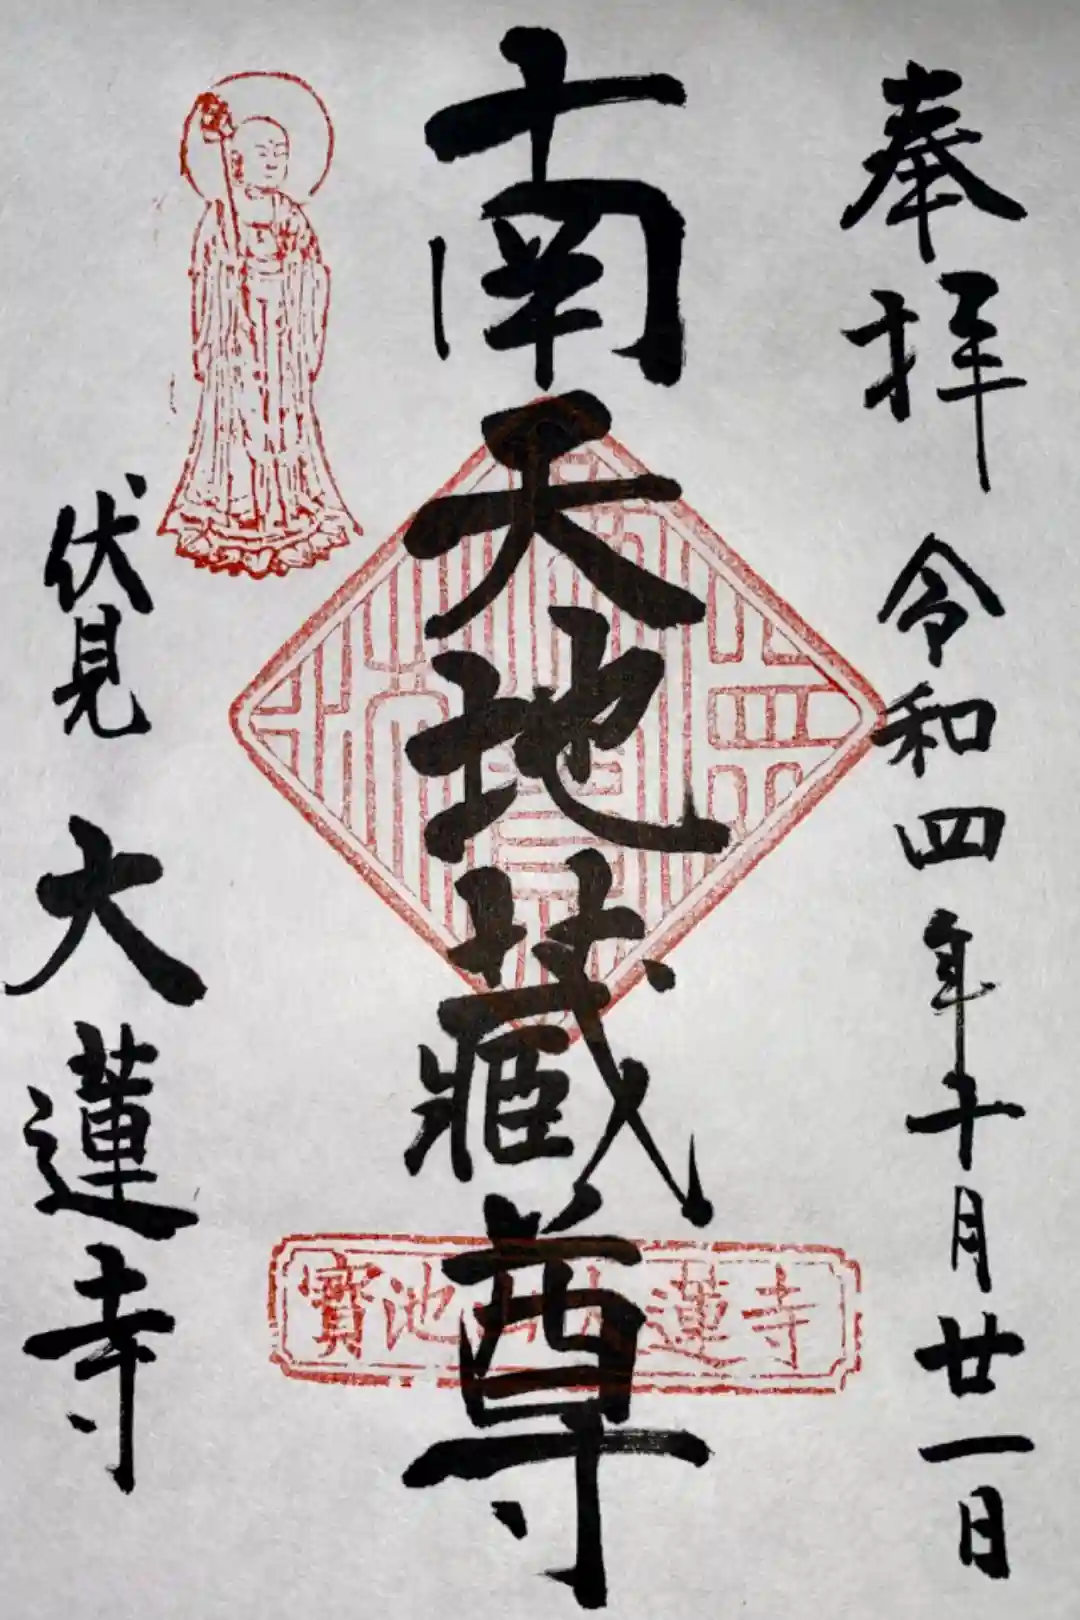 奉拝 令和四年十月廿一日
南天地蔵尊
伏見 大蓮寺
寶池山大蓮寺